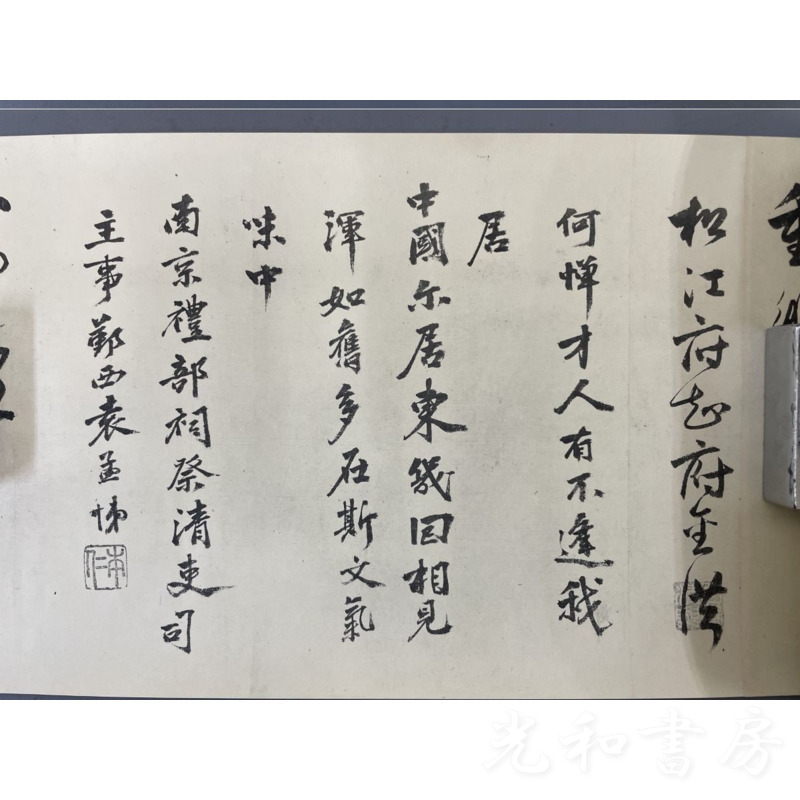 重
松江府知府
何憚才人有不逢我
居
中國尔居東幾回相見
渾如舊多在斯文氣
味中
南京禮部祠祭清吏司
主事鄞西袁孟悌
本仁
光和書房